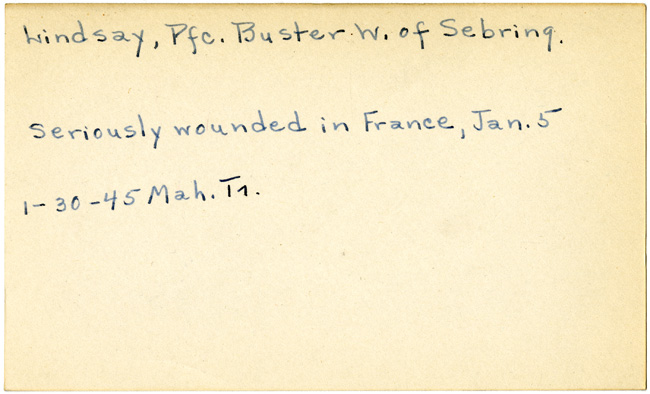 Lindsay, Pfc. Buster W. of Sebring.
Seriously wounded in France, Jan. 5
1-30-45 Mah. Tr.